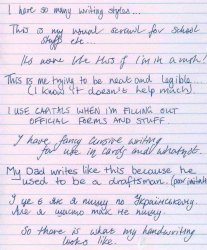 I have so many writing styles...
This is my usual scrawl for school
stuff etc...
Its more like this if I'm in a rush!
This is me trying to be neat and legible...
(I know it doesn't help much).
I USE CAPITALS WHEN I'M FILLING OUT
OFFICIAL FORMS AND STUFF.
I have fancy cursive writing
for use in cards and whatnot.
My Dad writes like this because he
used to be a draftsman. (poor imitation)
І це є як я пишу по Українському.
Але я щось так не пишу.
So there is what my handwriting
looks like.